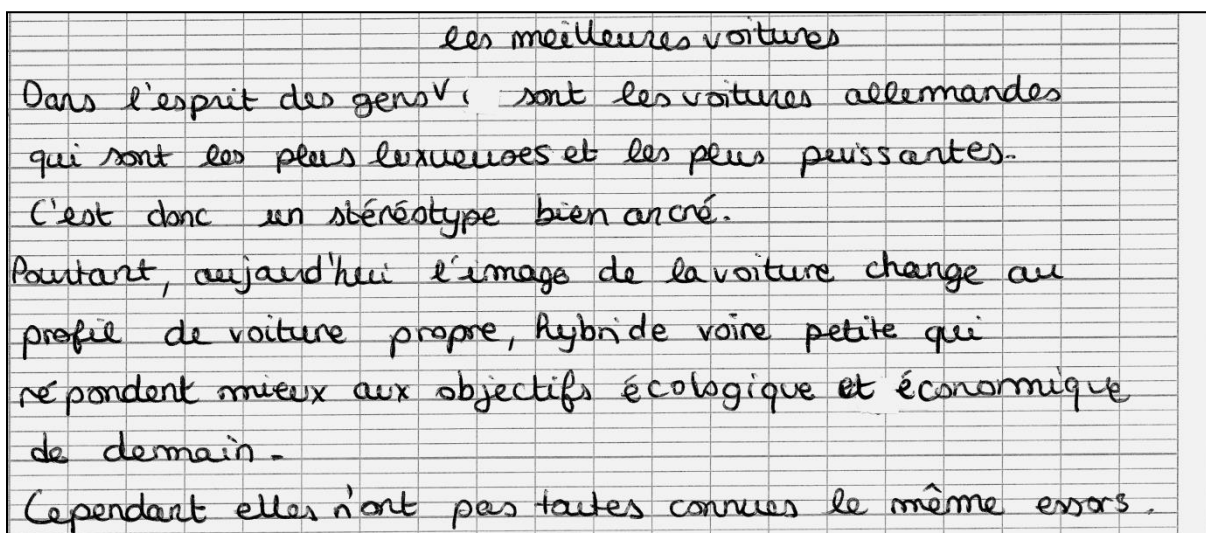 les meilleures voitures
Dans l'esprit des gens sont les voitures allemandes
qui sont les plus luxueuses et les plus puissantes.
C'est donc un stéréotype bien ancré.
Pourtant, aujourd'hui l'image de la voiture change au
profil de voiture propre, hybride voire petite qui
répondent mieux aux objectifs écologique et économique
de demain.
Cependant elles n'ont pas toutes connues le même essors.